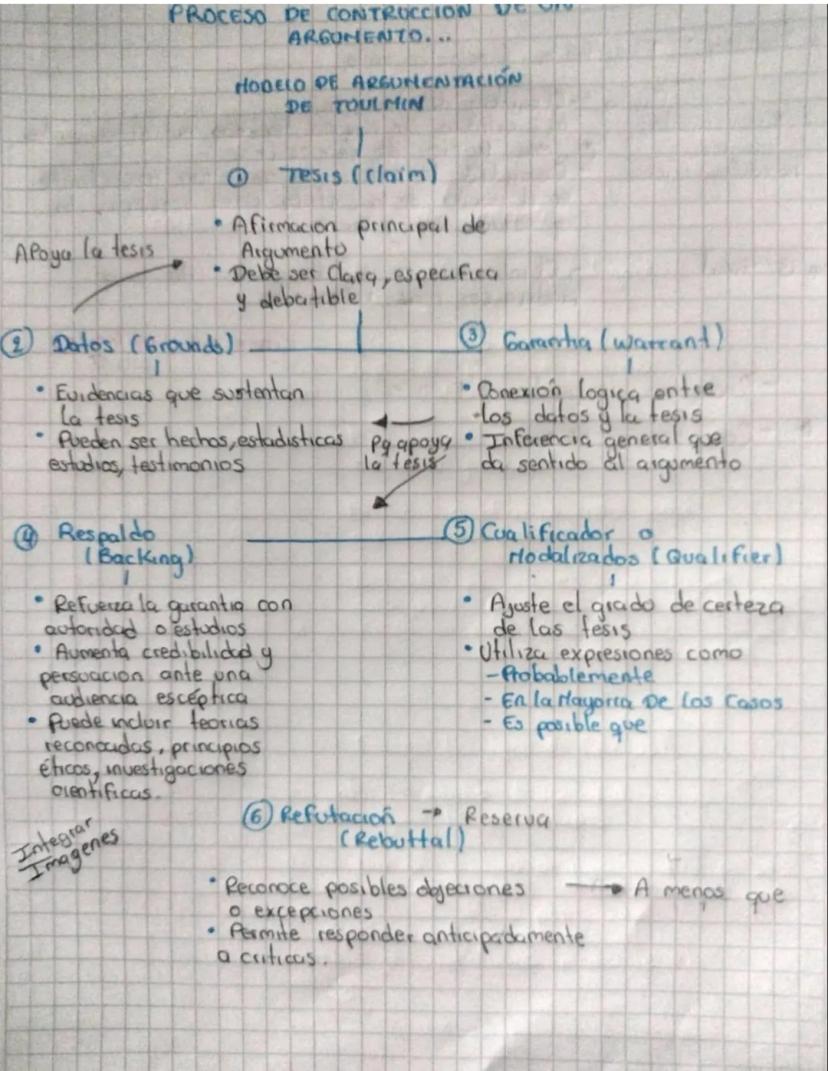 PROCESO DE CONTRUCCION DE UN
ARGUMENTO...
MODELO DE ARGUMENTACIÓN
DE TOULMIN
① Tesis (Claim)
• Afirmacion principal de
Argumento
• Debe ser Clara, especifica
y debatible
Apoya la tesis
② Datos (Grounds)
• Evidencias que sustentan
la tesis
• Pueden ser hechos, estadisticas
estudios, testimonios
③ Garantia (Warrant)
• Conexión logica entre
los datos y la tesis
• Inferencia general que
da sentido al argumento
Pq apoya
la tesis
④ Respaldo
(Backing)
• Refuerza la garantia con
autoridad o estudios
• Aumenta credibilidad y
persuacion ante una
audiencia escéptica
• Puede incluir teorias
reconocidas, principios
éticos, investigaciones
cientificas.
⑤ Cualificador o
Modalizados (Qualifier)
• Ajuste el grado de certeza
de las tesis
• Utiliza expresiones como
- Probablemente
- En la Mayoria De los Casos
- Es posible que
⑥ Refutación → Reserva
(Rebuttal)
Integrar
Imagenes
• Reconoce posibles objeciones → A menos que
o excepciones
• Permite responder anticipadamente
a criticas.